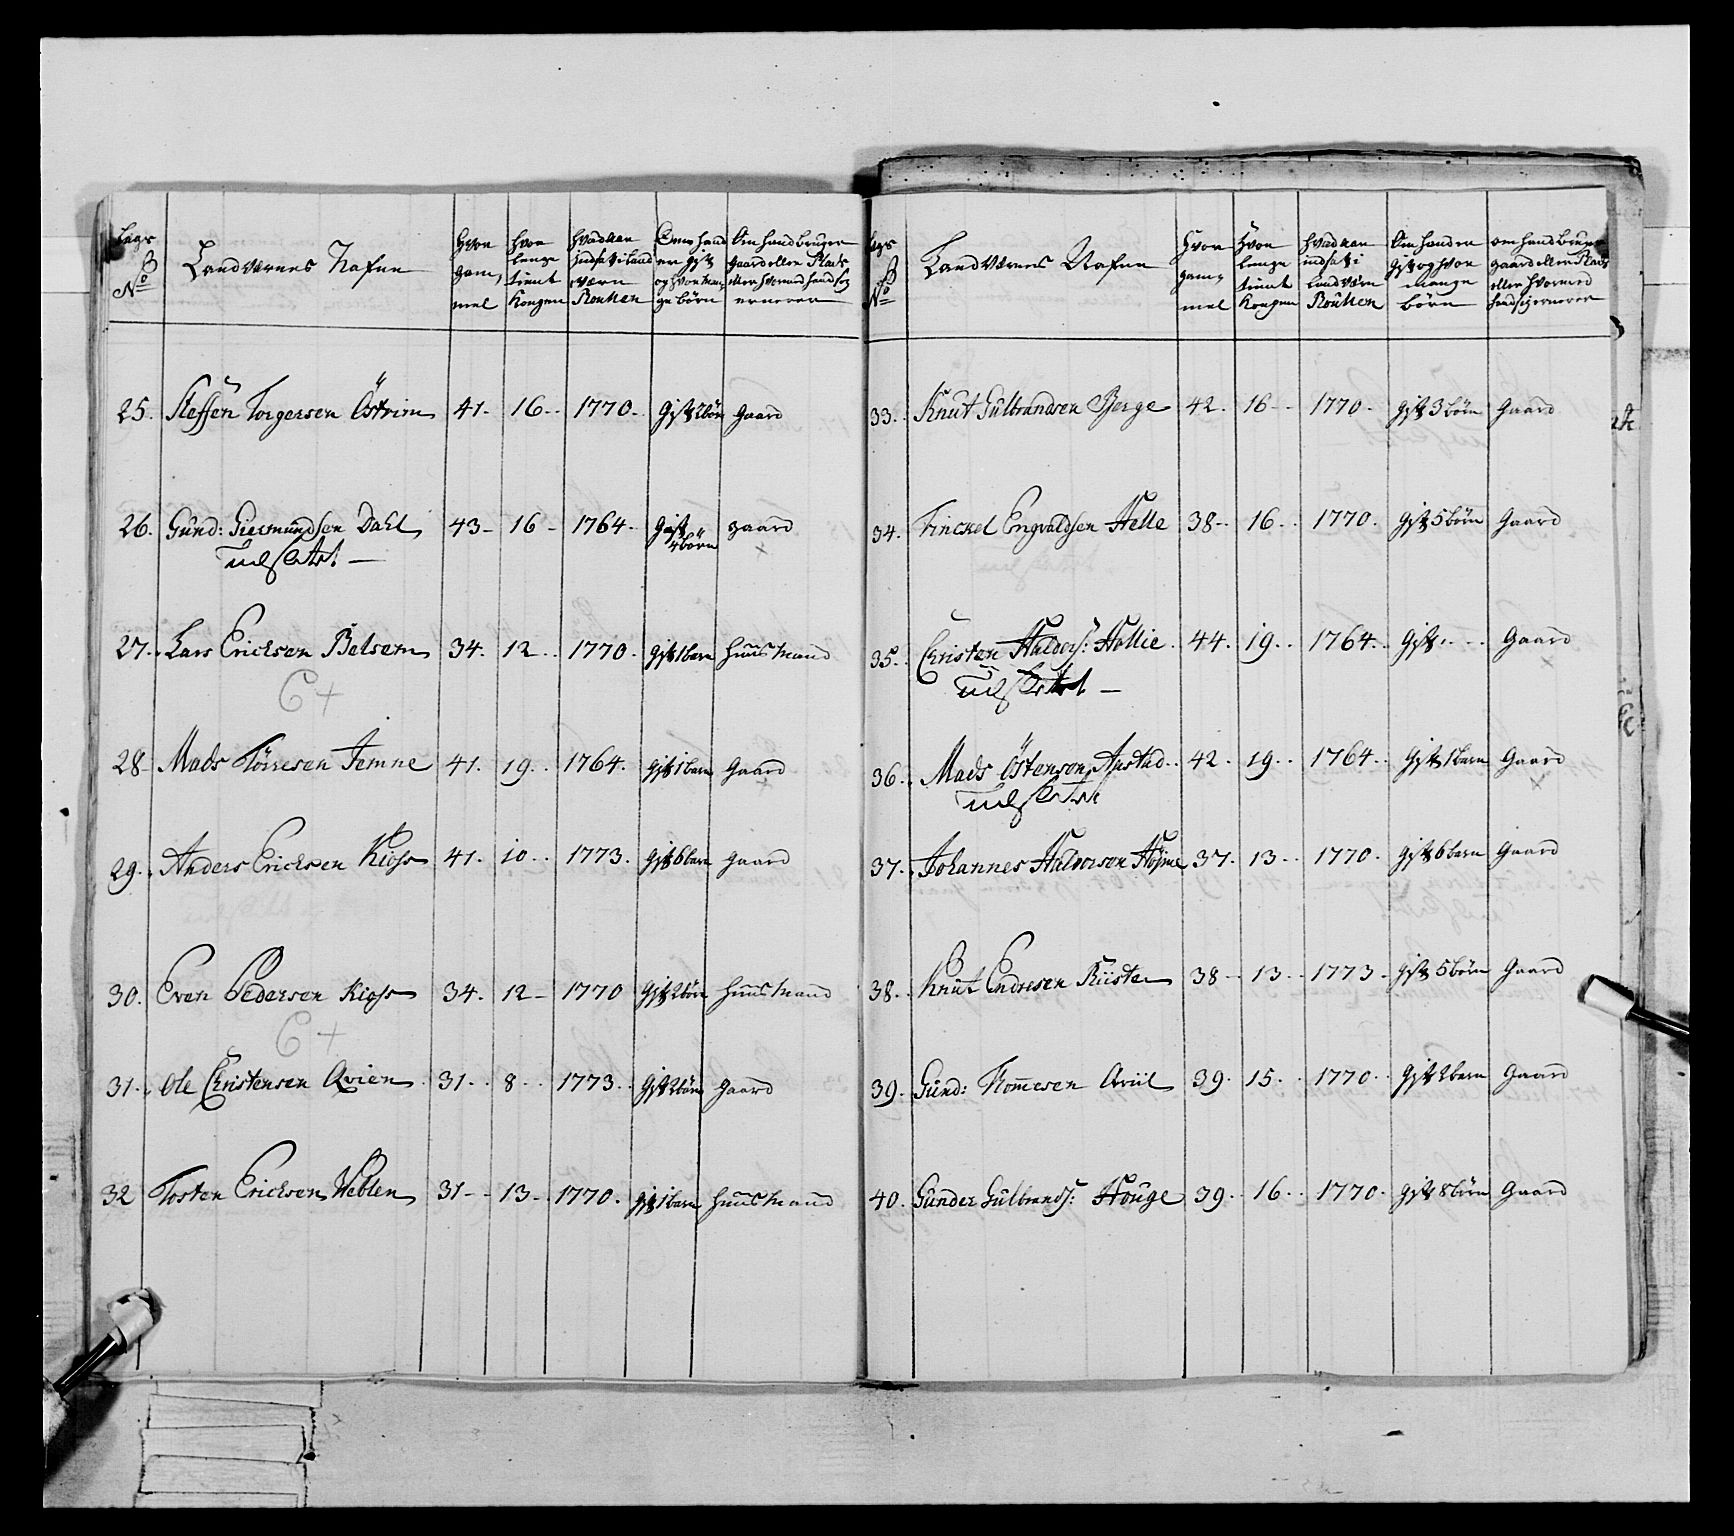 Legs No
Landværnes Nafne
Hvor gam, mel
hvor lenge tient Kongen
hvad Aar indsat i land værn Roullen
Om hand er gift og hvor man, ge börn
Om hand bruger Gaard eller Plads eller hvormed hand sig ernerer
25. Steffen Torgersen Östrim 41. 16. 1770. Gift 2 börn Gaard
26. Gund: Giermundsen Dahl 43 16 1764. Gift 4 börn gaard
x
udslettet
27. Lars Ericksen Belsem 34. 12. 1770. gift 1 barn Huusmand
C+
28 Mads Törresen Femne 41. 19. 1764. gift 1 barn Gaard
x
29. Anders Ericksen Kioss 41. 10. 1773. gift 6 barn gaard
30. Even Pedersen Kioss 34. 12 1770 gift 2 börn Huusmand
C+
31. Ole Christensen Qvien 31. 8. 1773. gift 2 börn gaard
32 Tosten Ericksen Weblen 31 13 1770. gift 1 barn Huusmand
Legs No
Landværnes Nafne
Hvor gam, mel
Hvor lenge tient Kongen
hvad Aar indsat i Landværn Roullen
Om hand er gift og hvor mange börn
om hand bruger gaard eller Plads eller hvormed hand sig ernerer
33. Knut Gulbrandsen Berge 42. 16 1770. gift 3 börn Gaard
34. Trinckel Engvaldsen Helle 38 16. 1770. gift 5 börn Gaard
35. Christen Haldors: Hollie 44. 19. 1764. gift Gaard
x
udslettet
36. Mads Östensen Apstad 42. 19. 1764. gift 1 barn Gaard
x
udslettet
37. Johannes Haldorsen Höjme 37. 13. 1770. gift 6 barn Gaard
38. Knut Endresen Riiste 38 13. 1773. gift 5 börn Gaard
39. Gund: Tommesen Qviil 39. 15. 1770. gift 2 barn Gaard
40. Gunder Gulbrands: Houge 39. 16. 1770. gift 8 börn Gaard